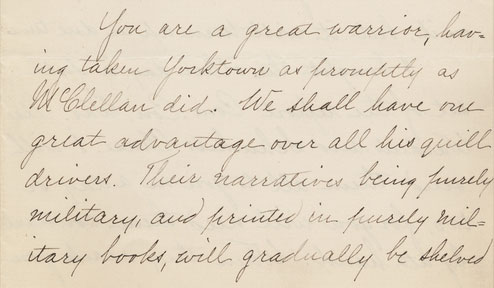 You are a great warrior, hav=
ing taken Yorktown as promptly as
McClellan did. We shall have one
great advantage over all his quill
drivers. Their narratives being purely
military, and printed in purely mil=
itary books, will gradually be shelved